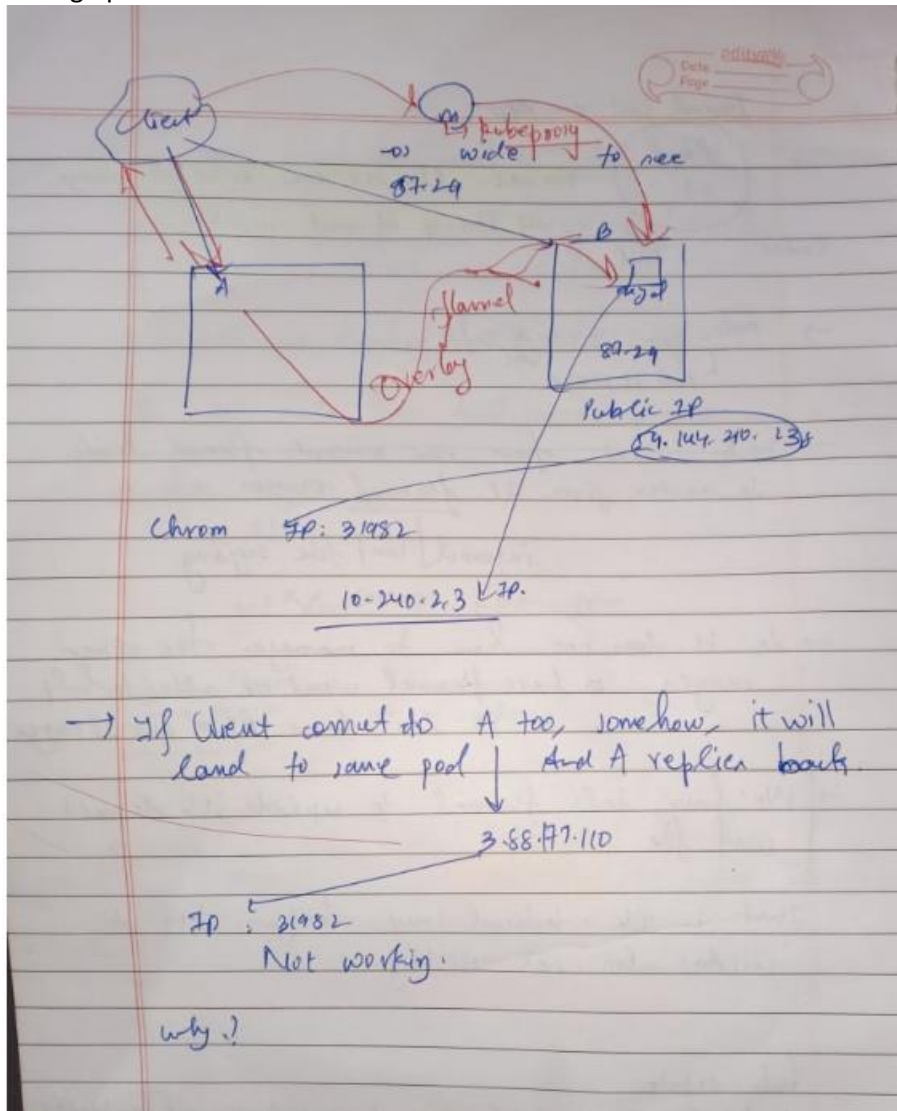 Date
Page
Client
m
↳ kubeproxy
-o wide to see
87.29
B
A
flannel
Overlay
87.29
Public IP
Chrom IP: 31982
10.240.2.3 IP.
→ If Client comut do A too, somehow, it will
land to same pod And A replies back.
3.88.177.110
IP : 31982
Not working.
why?